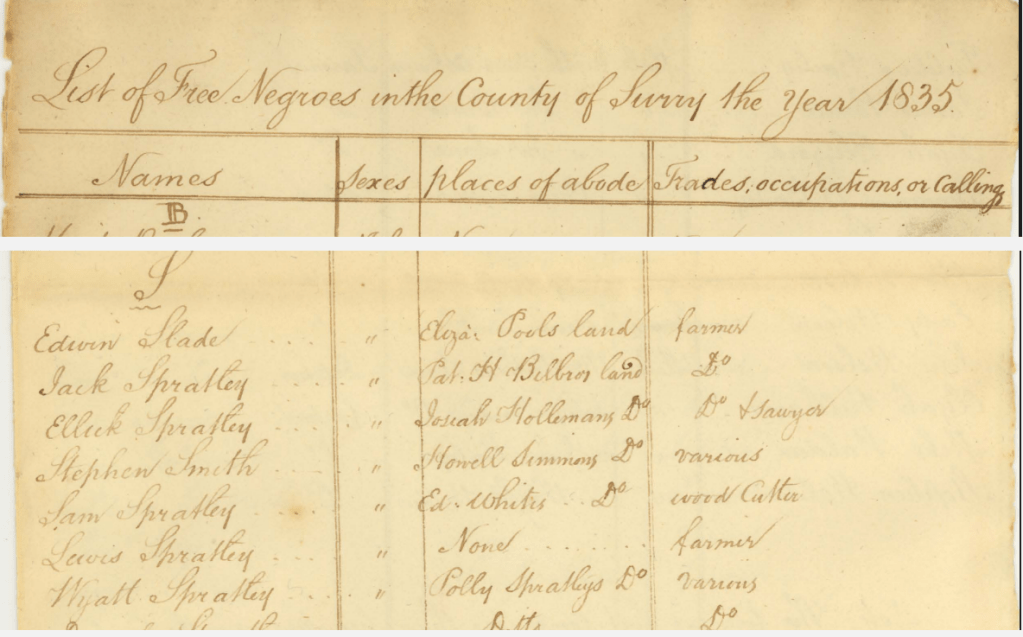 List of Free Negroes in the County of Surry the Year 1835.
Names sexes places of abode Trades, occupations, or Calling
B
S
Edwin Slade .... " Eliza: Pools land farmer
Jack Spratley .... " Pat: H Bilbros land Do
Ellick Spratley .... " Josiah Hollemans Do Do & Sawyer
Stephen Smith .... " Howell Simmons Do various
Sam Spratley .... " Ed: Whites .. Do wood Cutter
Lewis Spratley .... " None ........ farmer
Wyatt Spratley .... " Polly Spratleys Do various
Do